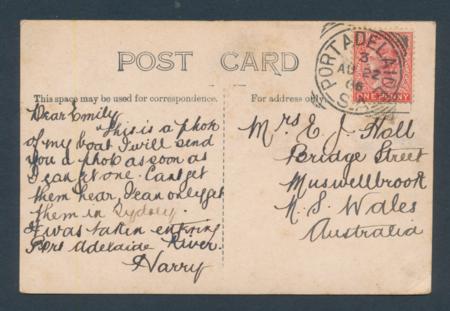 POST CARD
This space may be used for correspondence.
For address only.
Dear Emily
This is a phot
of my boat I will send
you a photo as soon as
I can get one. Cant get
them hear, I can only get
them in Sydney.
It was taken entering
Port Adelaide River.
Harry
PORT ADELAIDE
3
AU 22
06
S.A
ONE PENNY
Mrs E. J. Hall
Bridge Street
Muswellbrook
N. S. Wales
Australia